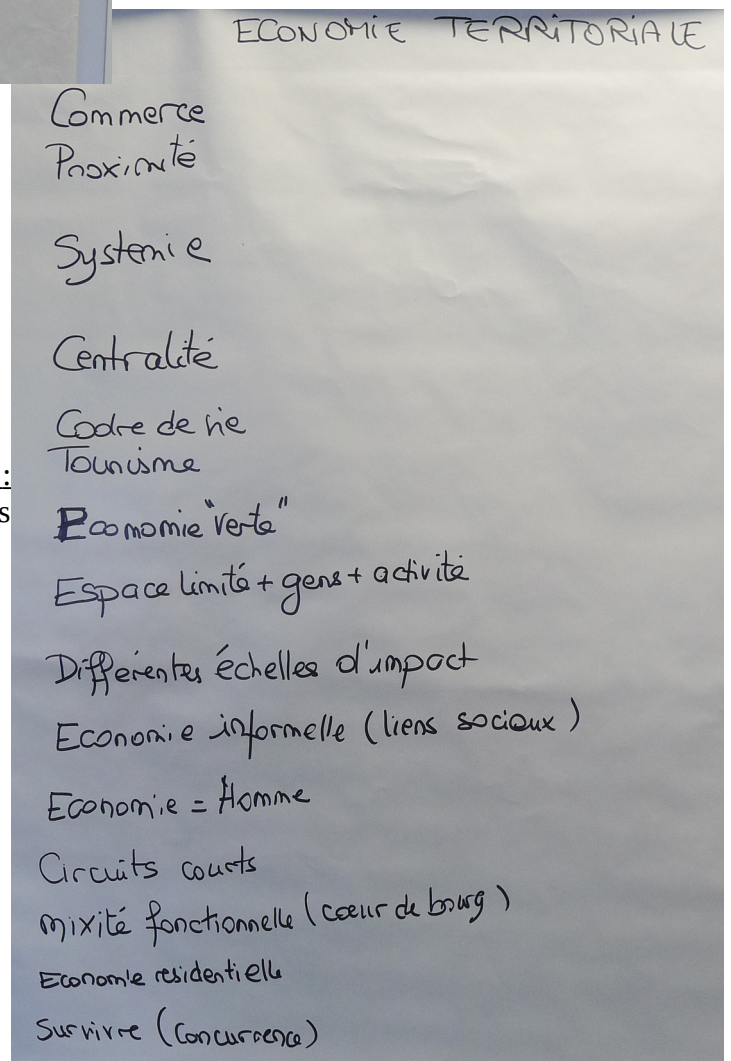 ECONOMIE TERRITORIALE
Commerce
Proximité
Systemie
Centralité
Cadre de vie
Tourisme
:
s
Economie "verte"
Espace limité + gens + activité
Différentes échelles d'impact
Economie informelle (liens sociaux)
Economie = Homme
Circuits courts
mixité fonctionnelle (cœur de bourg)
Economie residentielle
Survivre (concurrence)